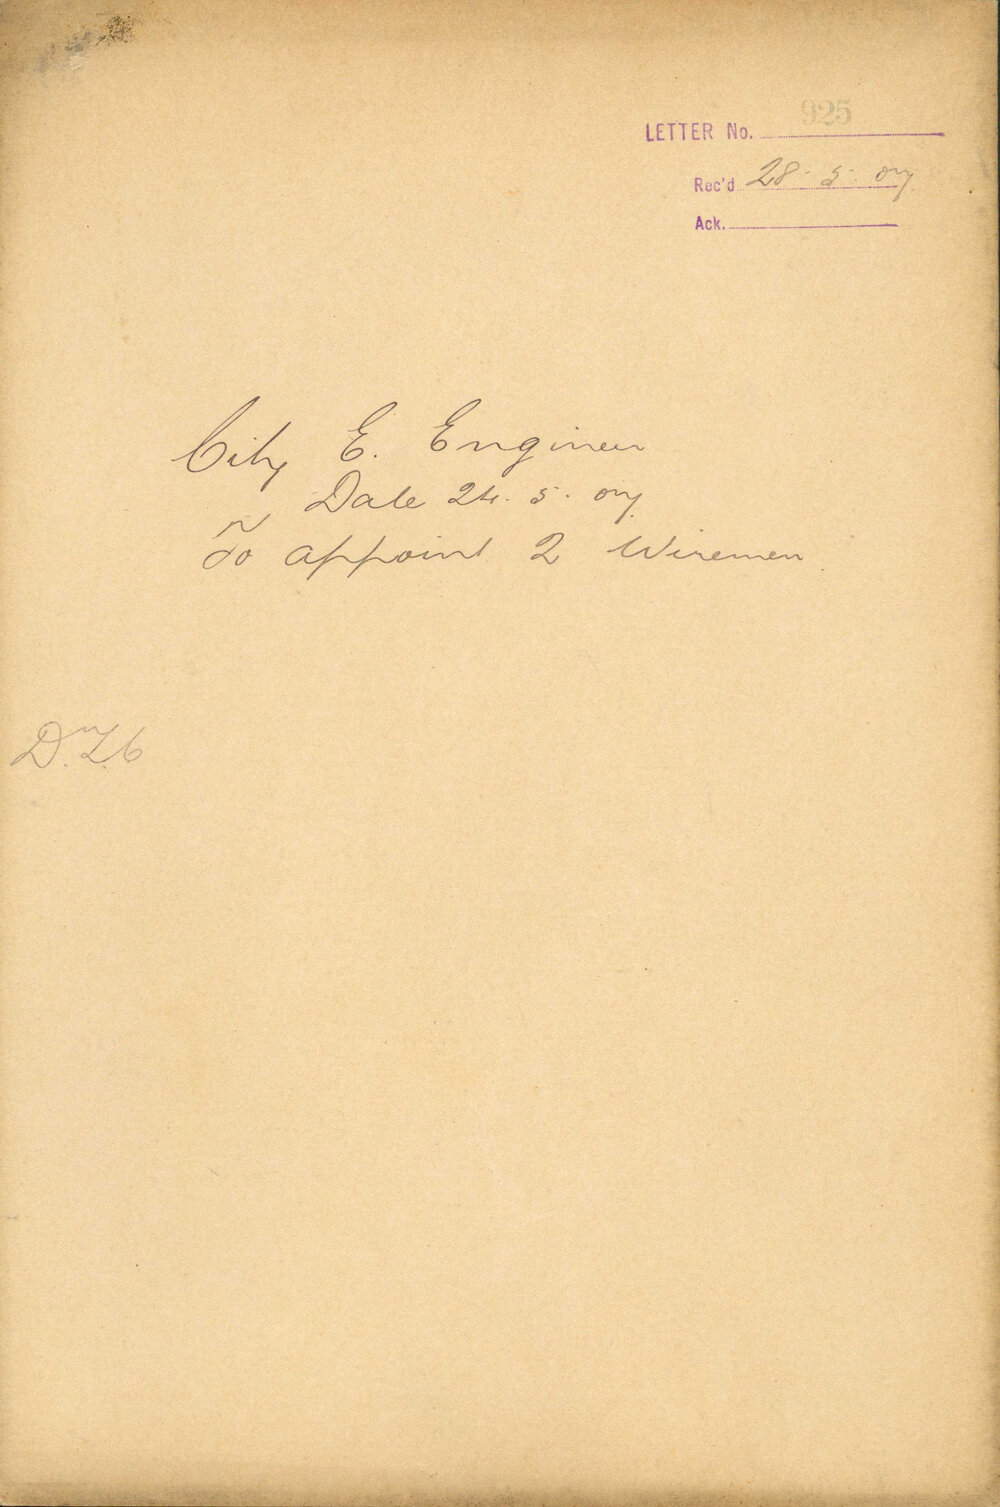 LETTER No. 925
Rec'd 28. 5. 07
Ack.
City E. Engineer
Date 24. 5. 07
To appoint 2 Wiremen